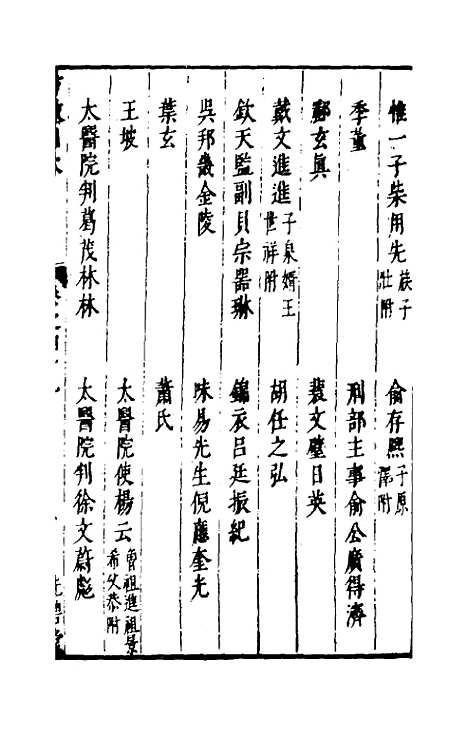 惟一子柴用先族子壯附　俞存熈子原深附
季董　刑部主事俞公廣得濟
鄒玄眞　裴文璧日英
戴文進進子泉婿王世祥附　胡任之弘
欽天監副貝宗器琳　錦衣吕廷振紀
吳邦畿金陵　味易先生倪應奎光
葉玄　蕭氏
王坡　太醫院使楊云曾祖進祖景希父恭附
太醫院判葛茂林林　太醫院判徐文蔚彪